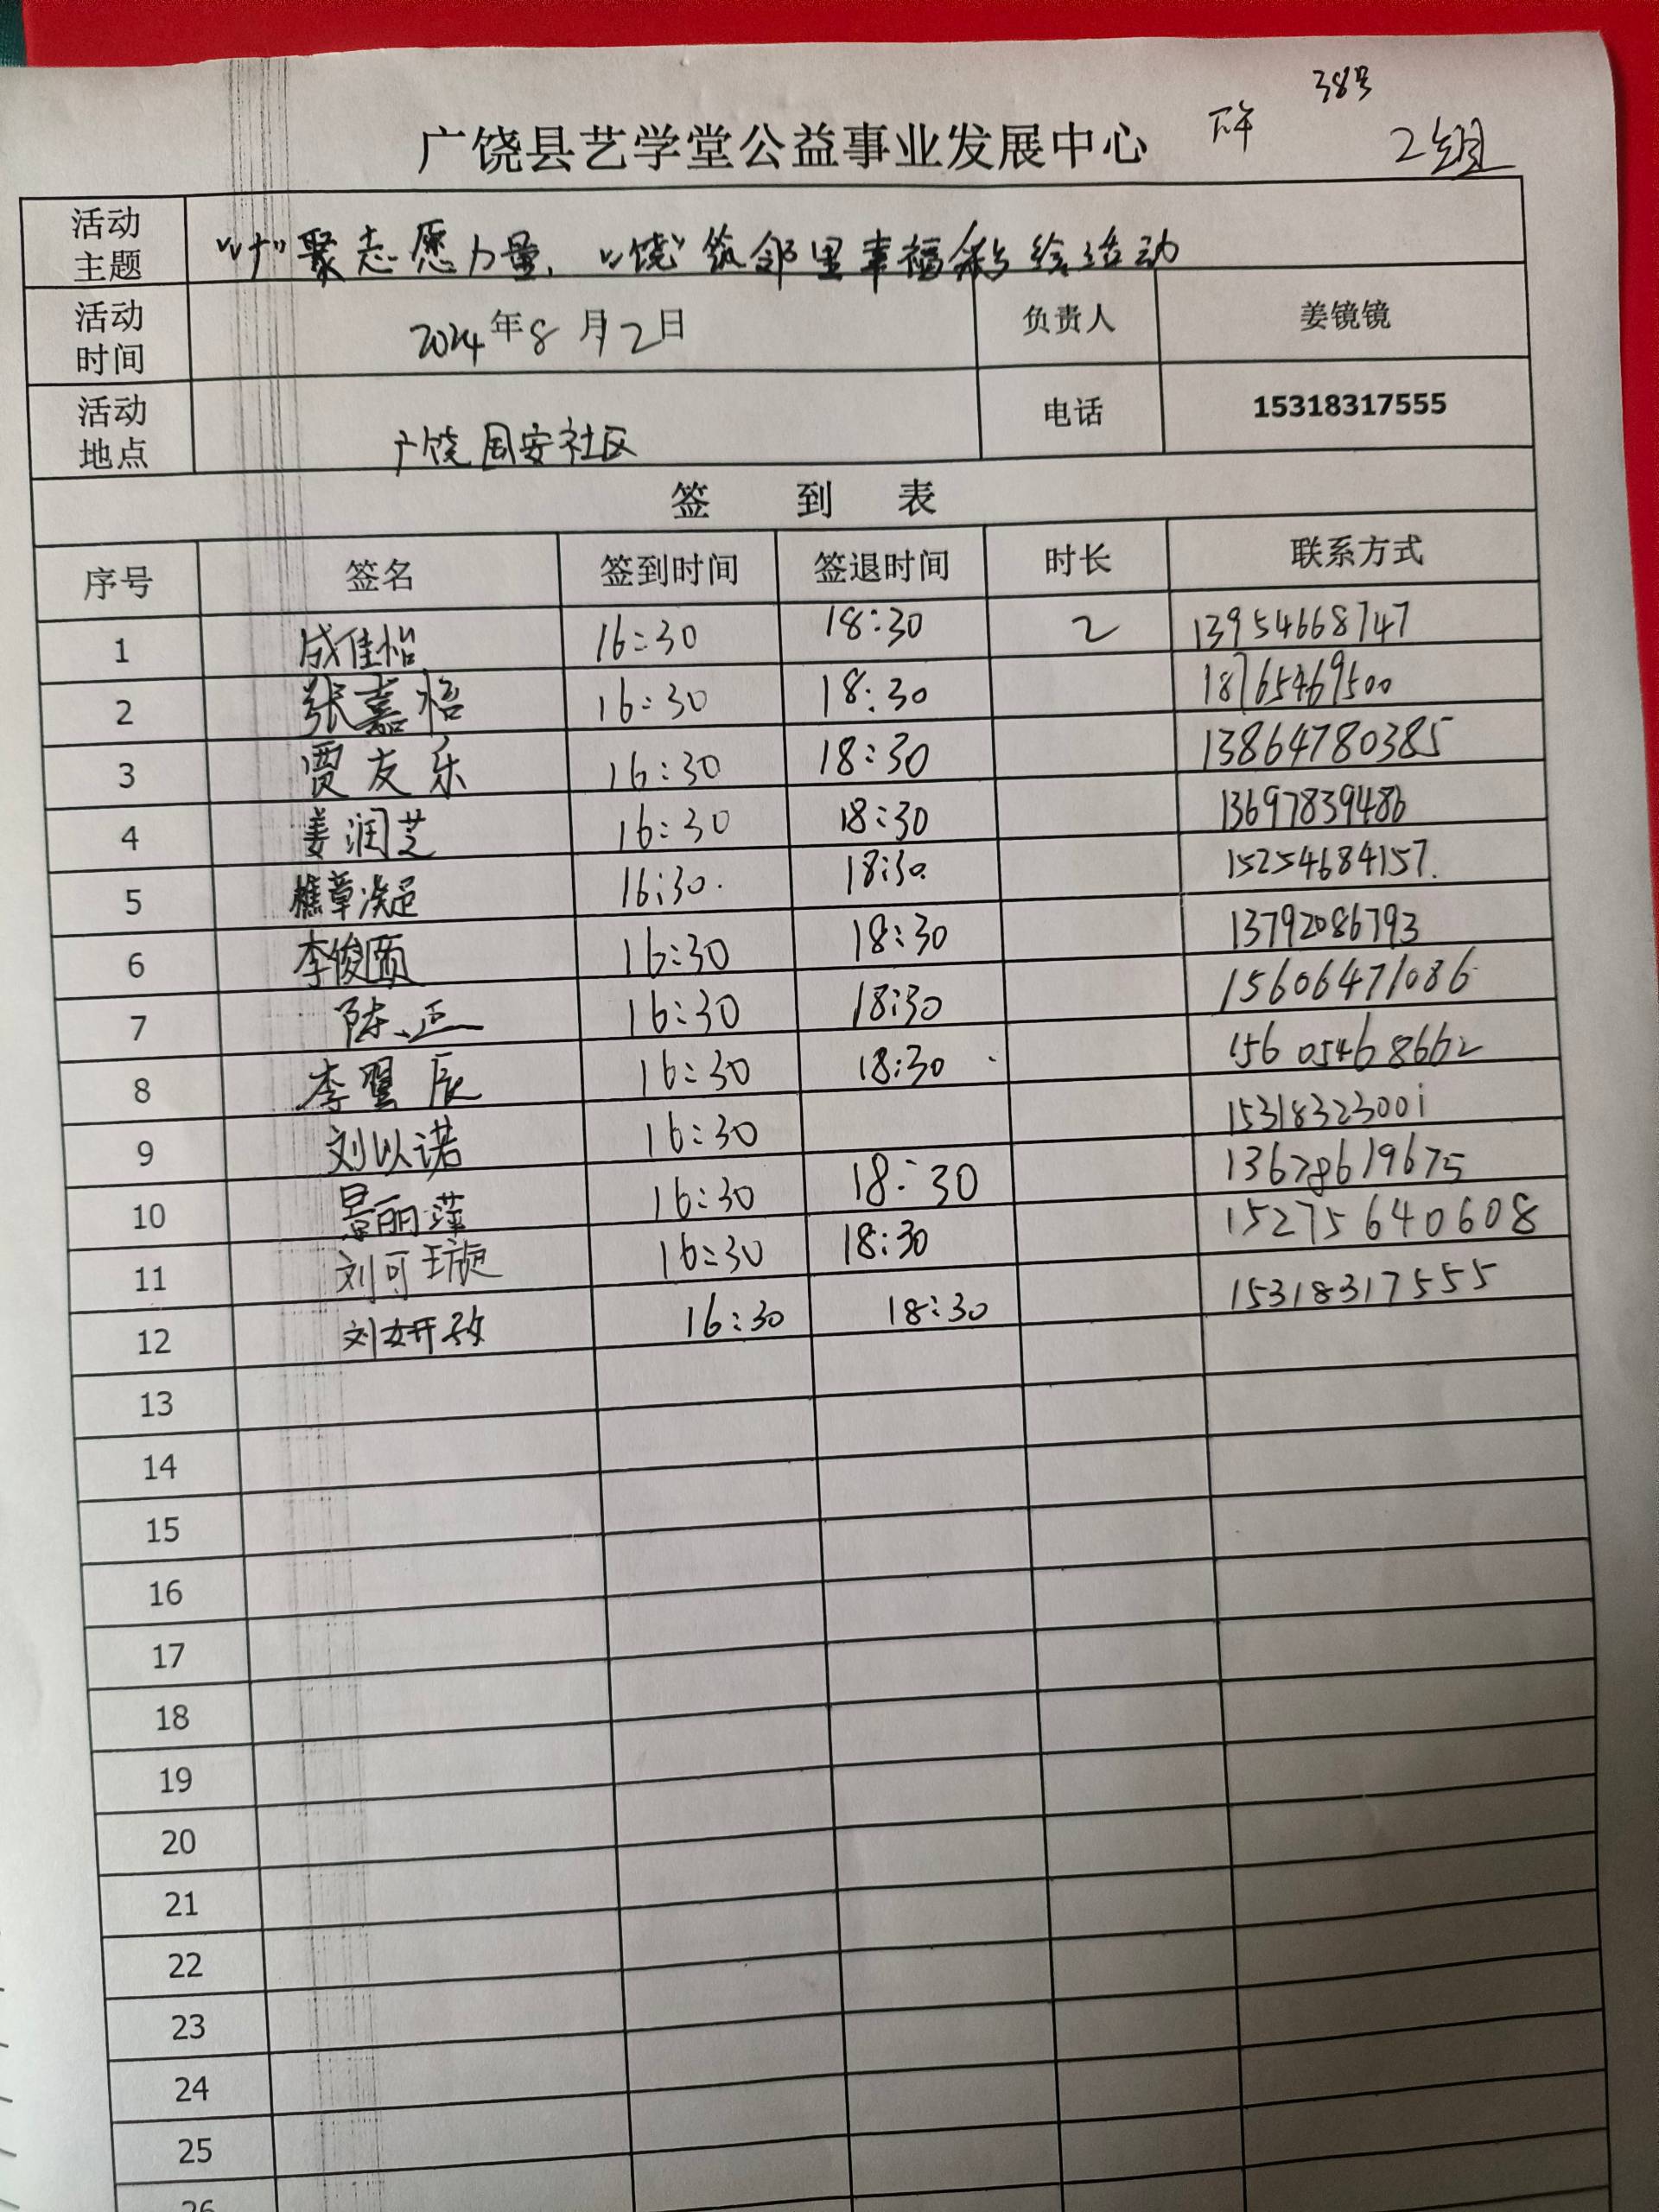 38号
广饶县艺学堂公益事业发展中心 下午 2组
活动主题 “广”聚志愿力量，“饶”筑邻里幸福彩绘活动
活动时间 2024年8月2日 负责人 姜镜镜
活动地点 广饶国安社区 电话 15318317555
签 到 表
序号 签名 签到时间 签退时间 时长 联系方式
1 成佳怡 16:30 18:30 2 13954668747
2 张嘉怡 16:30 18:30 18765469500
3 贾友乐 16:30 18:30 13864780385
4 姜润芝 16:30 18:30 13697839486
5 樵章凝 16:30. 18:30. 15254684157.
6 李俊颐 16:30 18:30 13792086793
7 陈正 16:30 18:30 15606471086
8 李翼辰 16:30 18:30 15605468662
9 刘以诺 16:30 15318323001
10 景丽萍 16:30 18:30 13678619675
11 刘可璇 16:30 18:30 15275640608
12 刘妍孜 16:30 18:30 15318317555
13
14
15
16
17
18
19
20
21
22
23
24
25
26